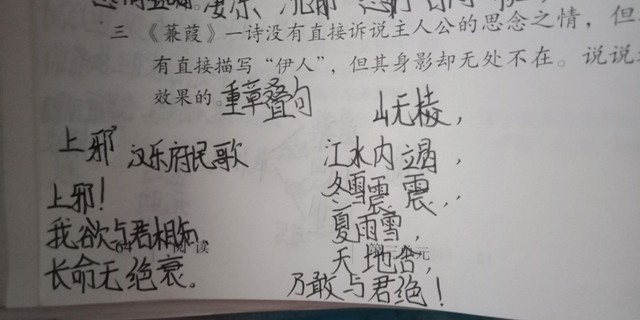 三 《蒹葭》一诗没有直接诉说主人公的思念之情，但
有直接描写“伊人”，但其身影却无处不在。说说
效果的。重章叠句
上邪 汉乐府民歌
上邪！
我欲与君相知
长命无绝衰。
山无棱，
江水内竭，
冬雪震震，
夏雨雪，
第三单元
天地否，
乃敢与君绝！